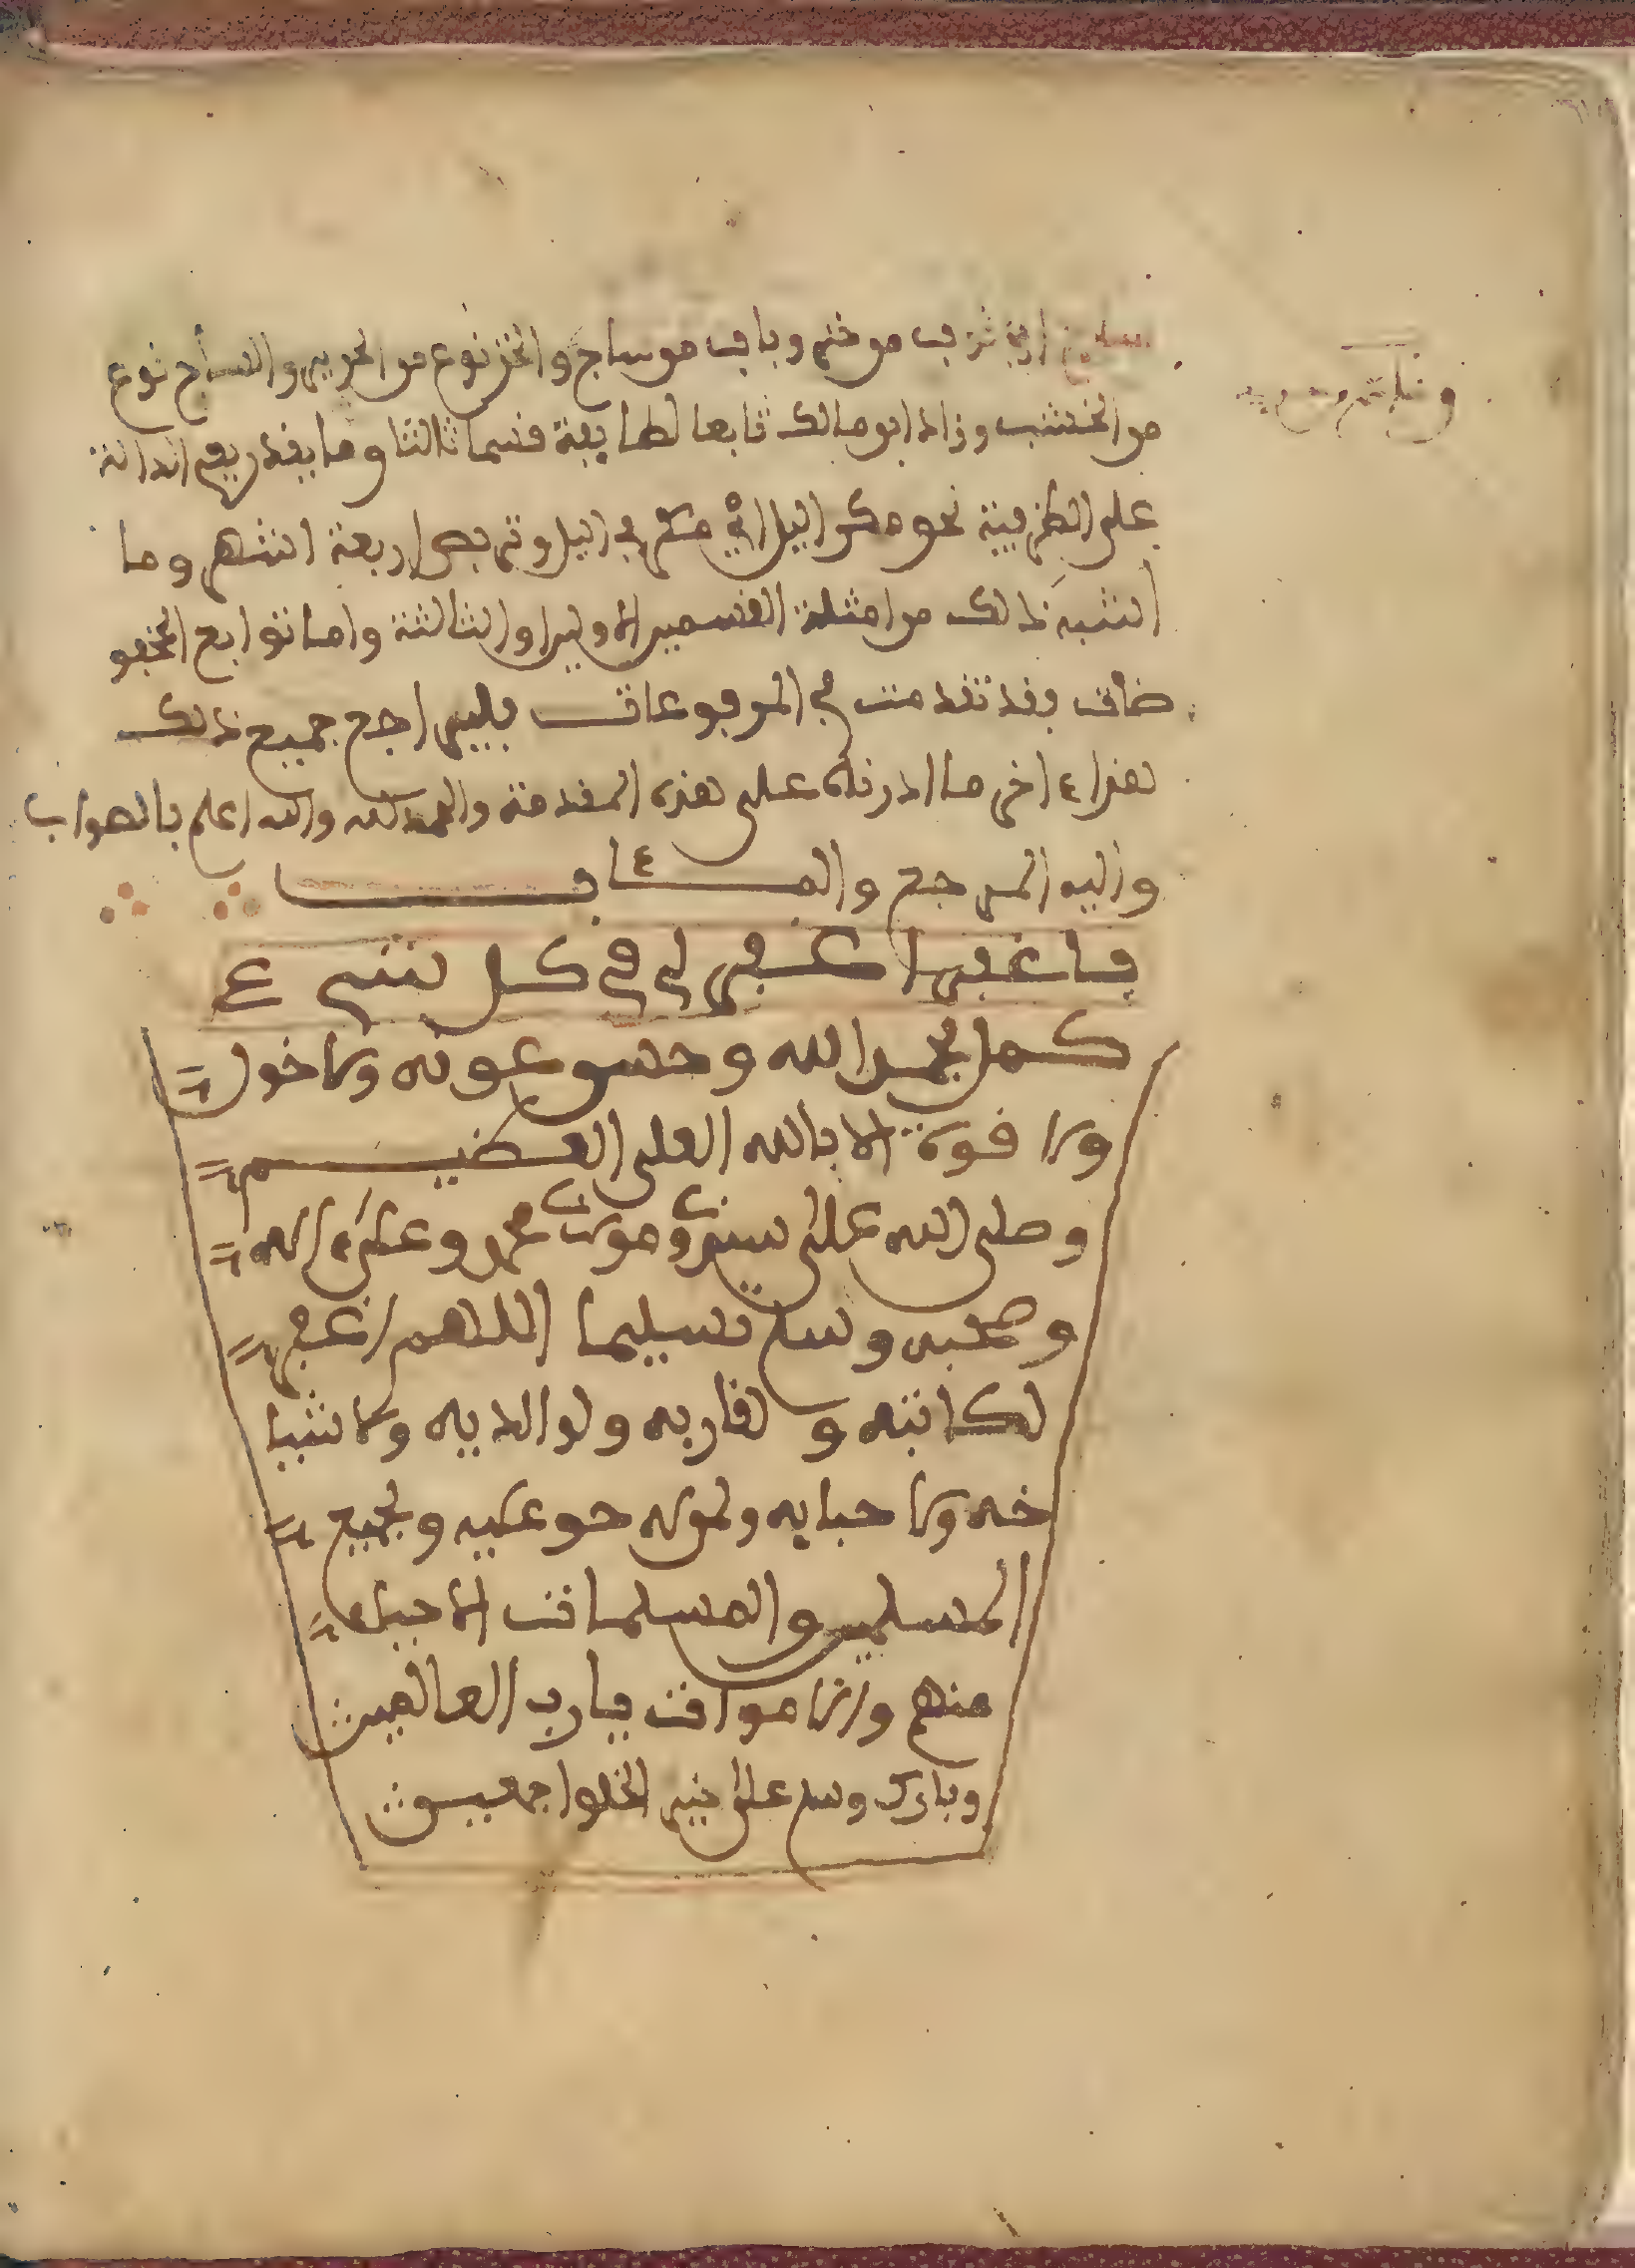 اي ثوب من خز وباب من ساج والخز نوع من الحرير والساج نوع
من الخشب وزاد ابن مالك تابعا لطايفة قسما ثالثا وما يقدر بفي الدالة
على الظرفية نحو مكر اليل اي مكر في اليل وتربص اربعة اشهر وما
اشبه ذلك من امثلة القسمين الاولين والثالثة واما توابع المخفو
ضات فقد تقدمت في المرفوعات فليراجع جميع ذلك
هذا ءاخر ما اردناه على هذه المقدمة والحمد لله والله اعلم بالصواب
واليه المرجع والمئاب
كل شيء
كمل بحمد الله وحسن عونه ولا حول
ولا قوة الا بالله العلي العضيم
وصلى الله على سيدنا ومولانا محمد وعلى ءاله
وصحبه وسلم تسليما اللهم اغفر
لكاتبه و لقاربه ولوالديه ولاشيا
خه ولاحبابه ولمن له حق عليه ولجميع
المسلمين والمسلمات الاحياء
منهم والاموات يا رب العالمين
وبارك وسلم على خير الخلق اجمعين